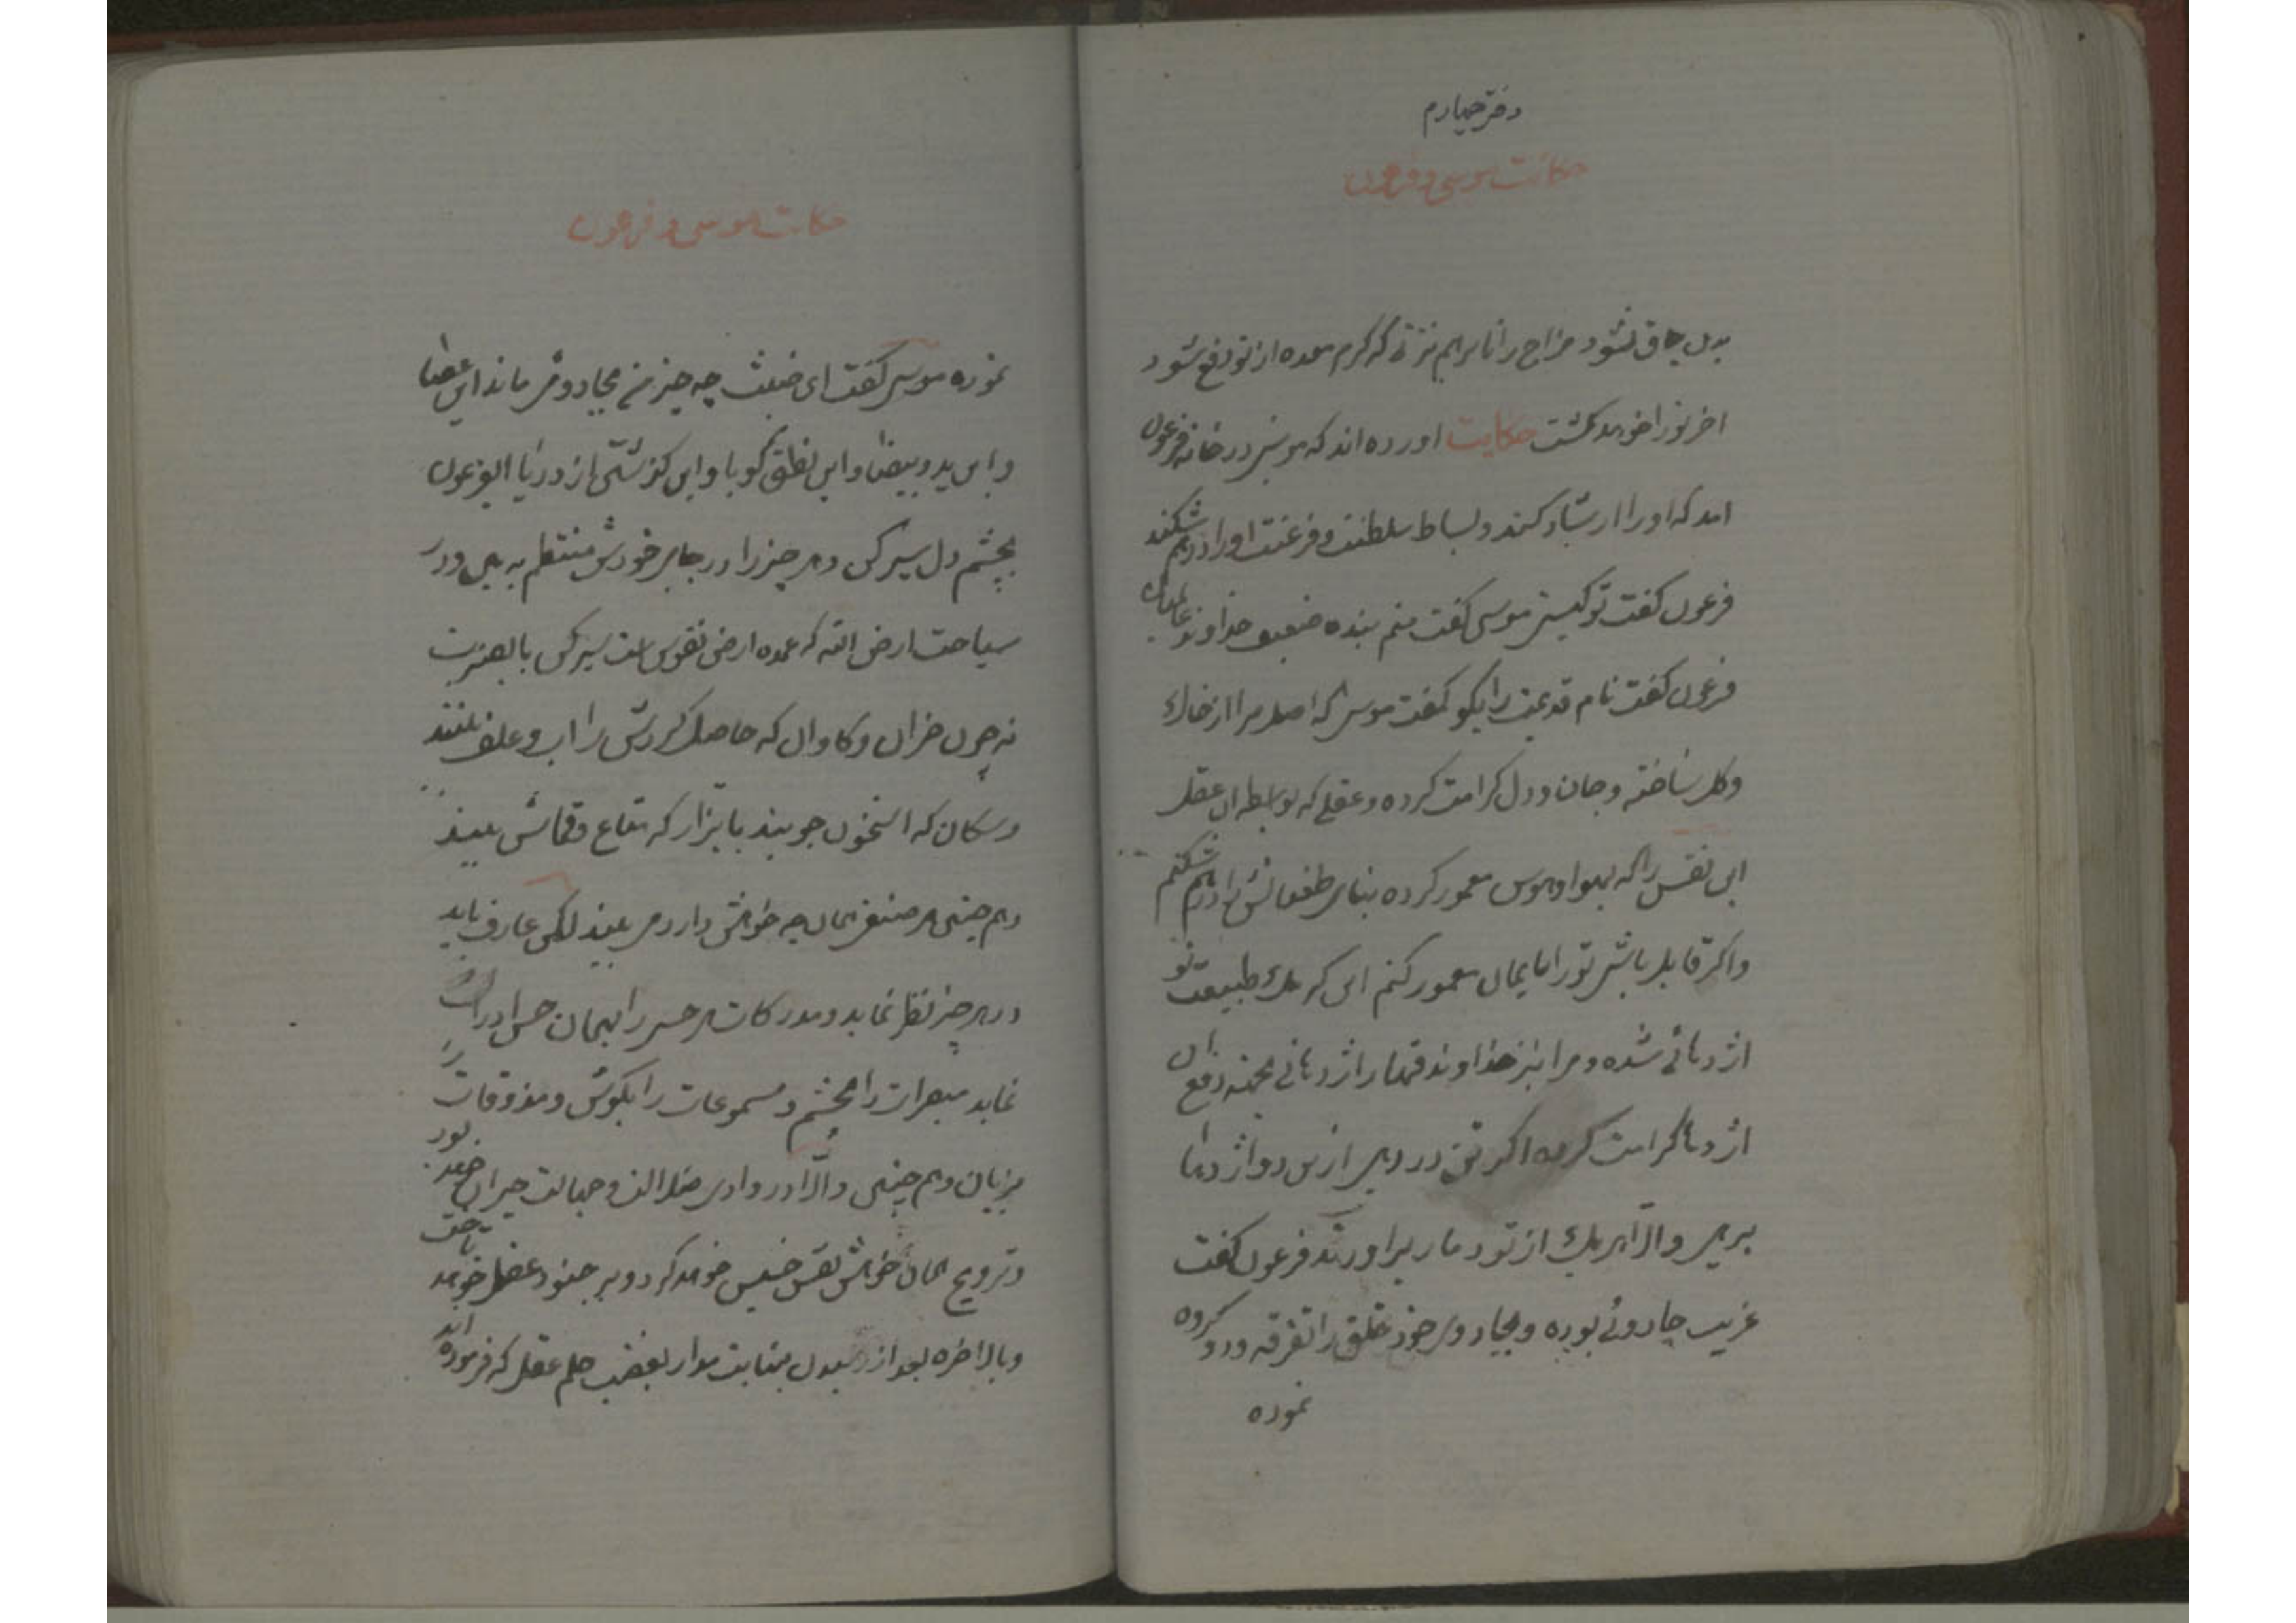 دفتر چهارم
حکایت موسی و فرعون
بدن چاق نشود مزاج را تا برهم نزنی که کرم معده از تو دفع شود
اخر تو را خواهد کشت حکایت اورده اند که موسی در خانه فرعون
امد که او را ارشاد کند و بساط سلطنت و فرعنت او را درهم شکند
فرعون گفت تو کیستی موسی گفت منم بنده ضعیف خداوند عالمیان
فرعون گفت نام قدیمت را بگو گفت موسی که اصل مرا از خاک
وگل ساخته و جان و دل کرامت کرده و عقلی که بواسطه ان عقل
این نفس را که بهوا و هوس معمور کرده بنای طغیانش را درهم شکنم
و اگر قابل باشی تو را بایمان معمور کنم این که ملک طبیعت تو
اژدهائی شده و مرا نیز خداوند قهار اژدهائی بجهته دفع ان
اژدها کرامت کرده اگر تن در دهی ازین دو اژدها
برهی والا هر یک از تو دمار برآورند فرعون گفت
غریب جادوئی بوده و بجادوی خود خلق را تفرقه و دو گروه
نموده
حکایت موسی و فرعون
نموده موسی گفت ای خبیث چه چیز من بجادو می ماند این عصا
و این ید و بیضا و این نطق گویا و این گذشتن از دریا ای فرعون
بچشم دل سیر کن و هر چیز را در جای خودش منتظم به بین و در
سیاحت ارض الله که عمده ارض نفوس است سیر کن با بصیرت
نه چون خران و گاوان که حاصل گردش را اب و علف بینند
و سگان که استخوان جویند یا بزاز که متاع و قماش بیند
و هم چنین هر صنفی همان چه خواهش دارد می بیند لکن عارف باید
در هر چیز نظر نماید و مدرکات هر حس را بهمان حس ادراک
نماید مبصرات را بچشم و مسموعات را بگوش و مذوقات را
بزبان و هم چنین والا در وادی ضلالت و جهالت حیران خواهد بود
و ترویج همان خواهش نفس خسیس خواهد کرد و بر جنود عقل خواهد تاخت
و بالاخره بعد از بغضب حلم عقل که فرموده اند